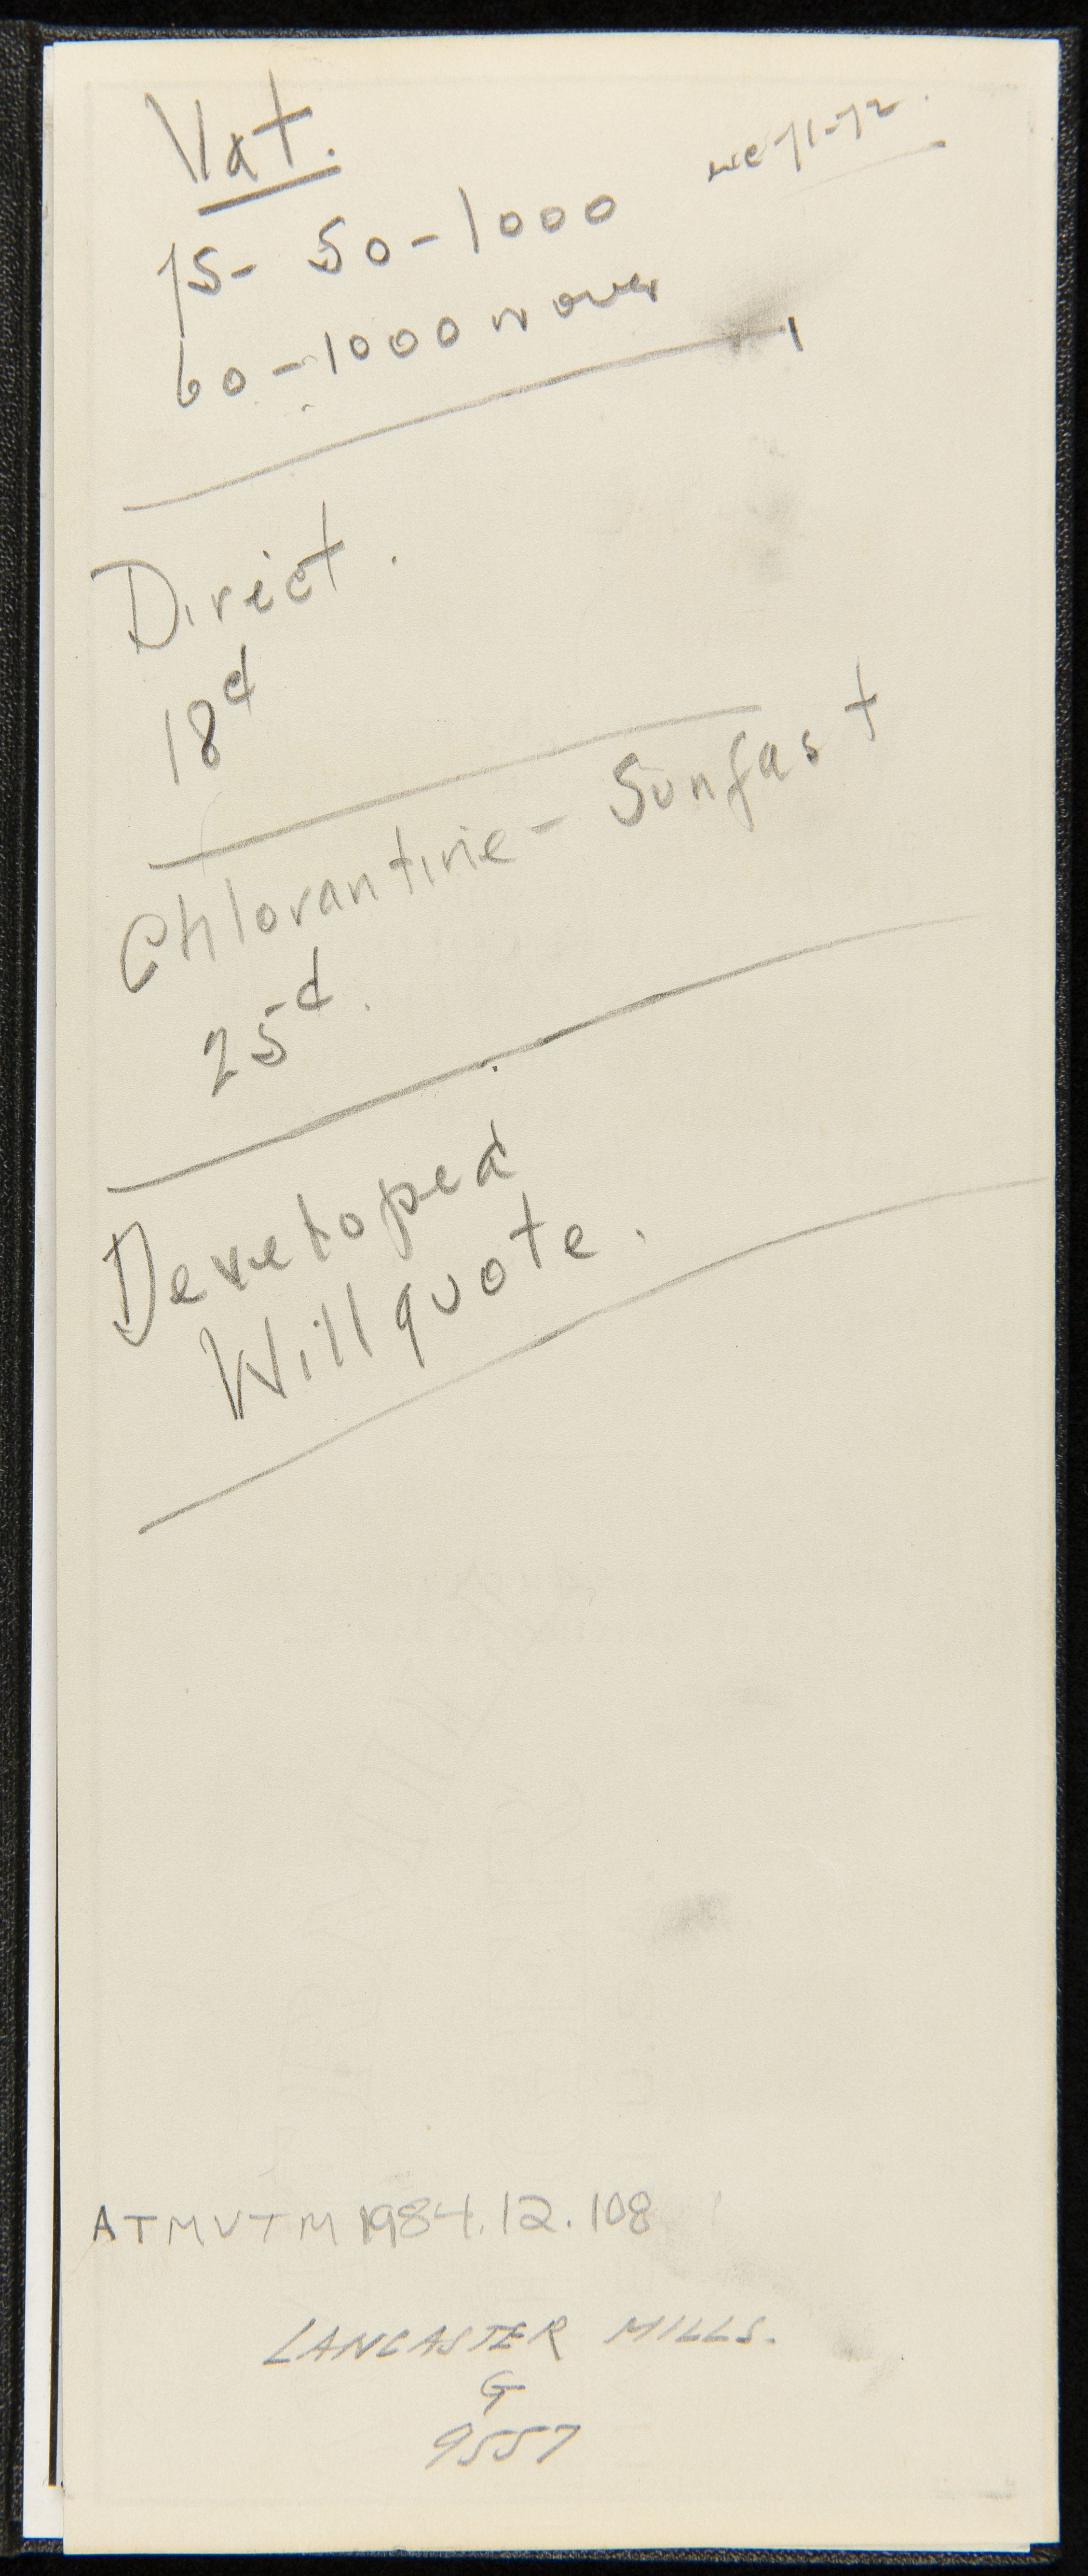 Vat.
75 - 50 - 1000
60 - 1000 or over
Direct.
18¢
Chlorantine - Sunfast
25¢.
Developed
Will quote.
ATMVTM 1984.12.108
LANCASTER MILLS.
G
9557